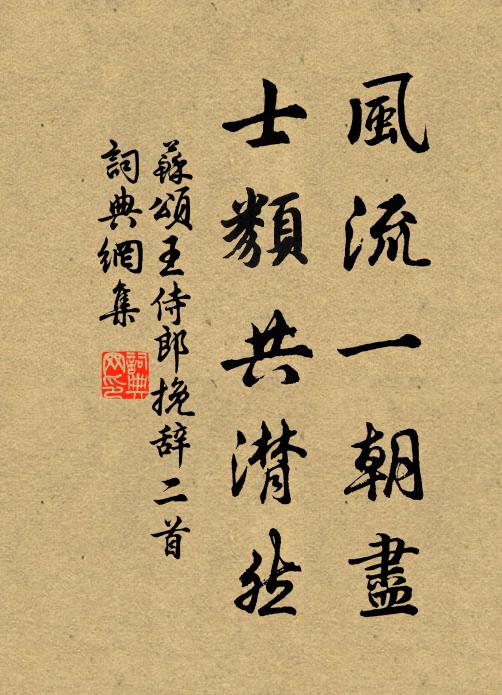 風流一朝盡
士類共潸然
蘇頌王侍郎挽辞二首
詞典網集
詞典网印